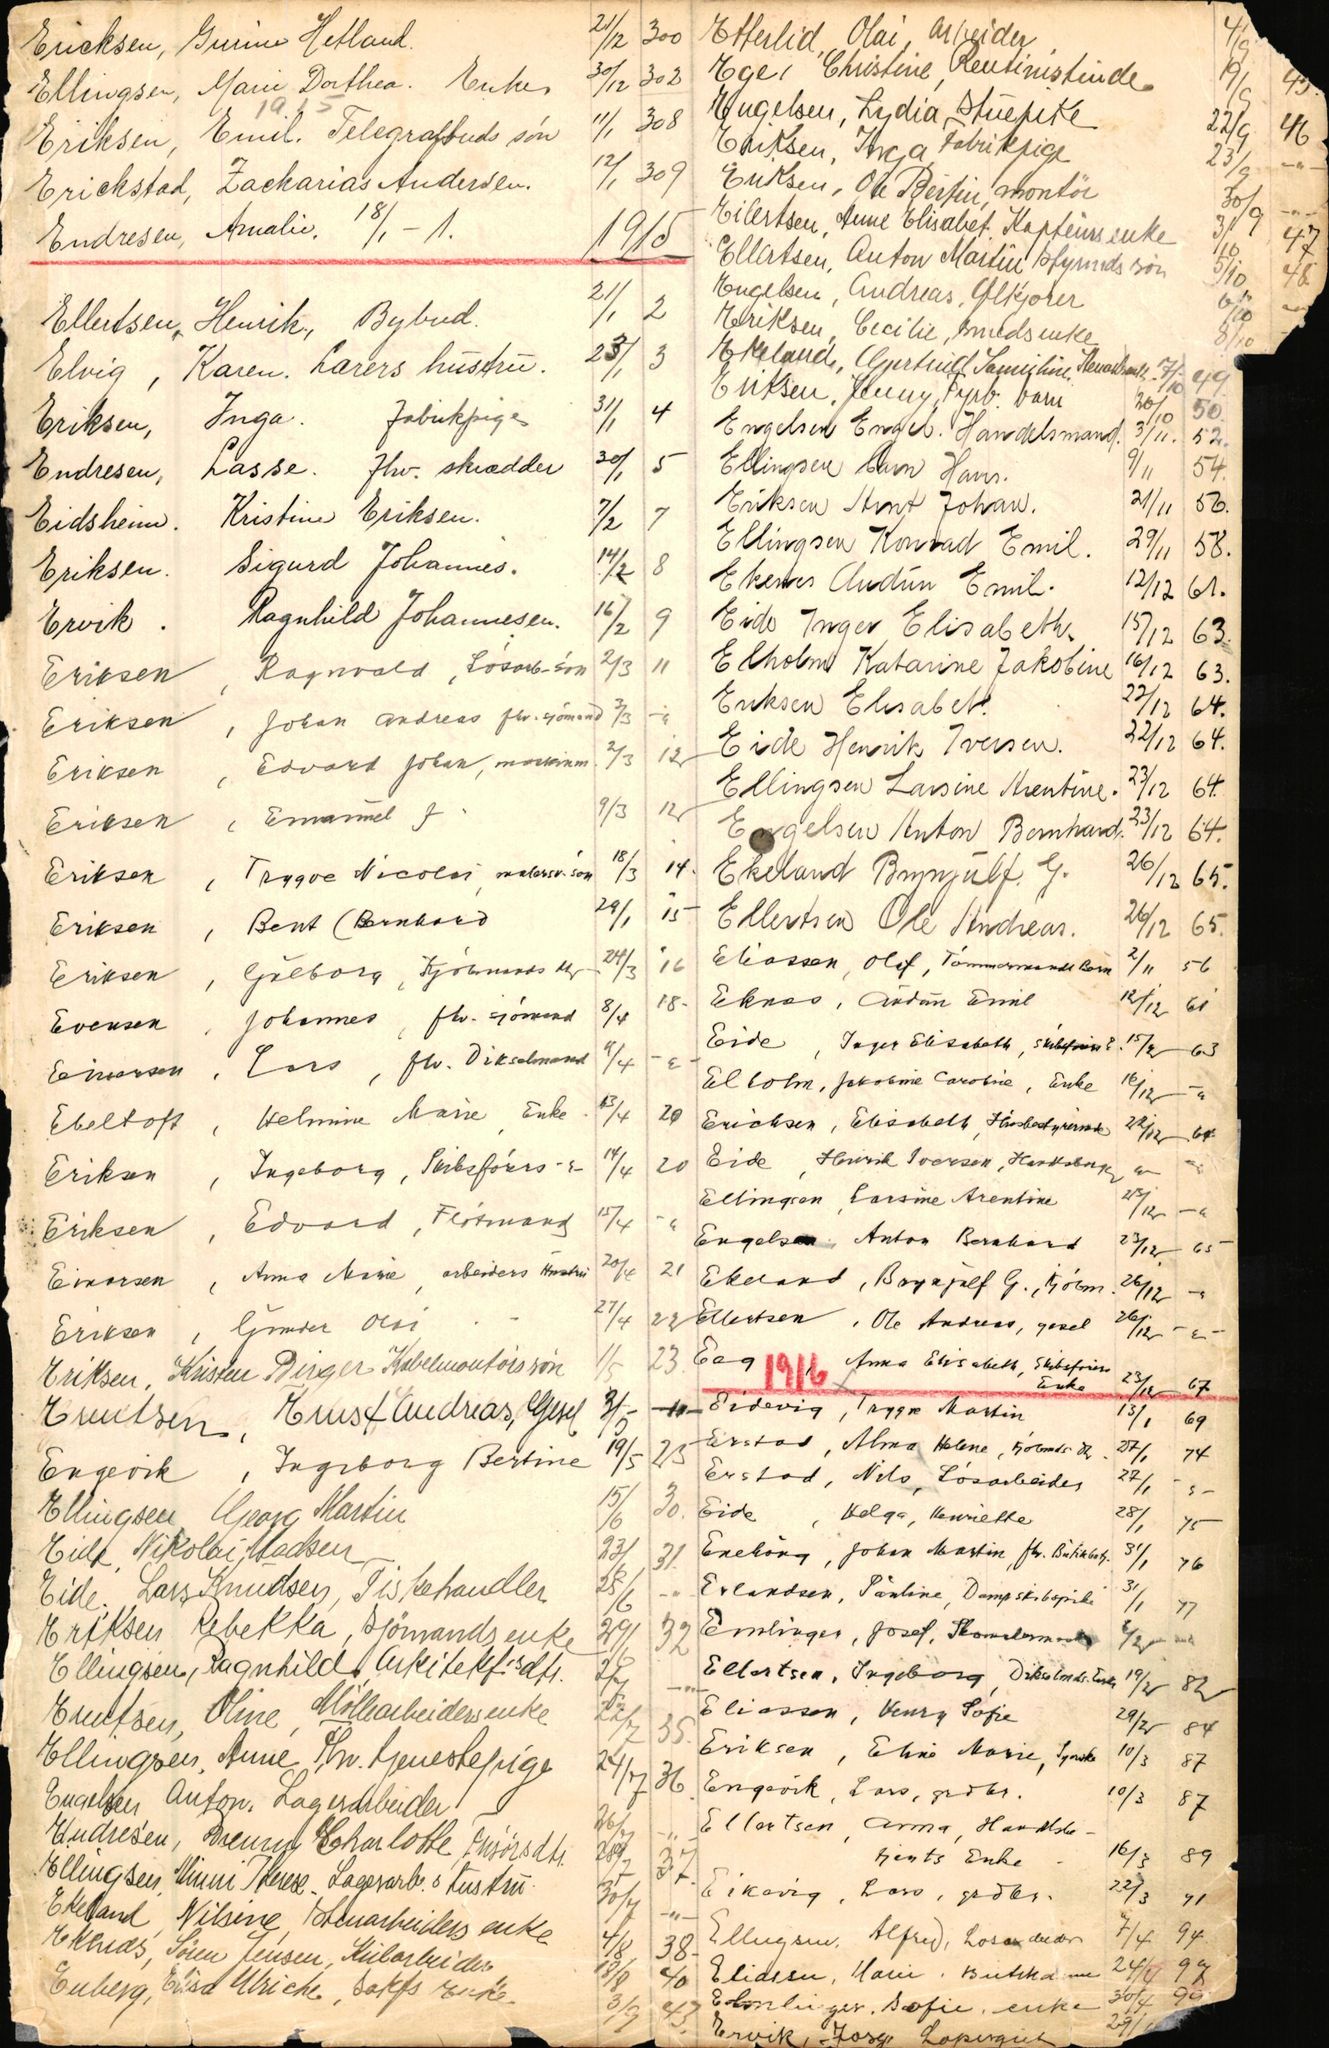 Ericksen, Gurine Hetland. 21/12 300
Ellingsen, Marie Dorthea. Enke, 30/12 302
1915
Eriksen, Emil. Telegrafbuds søn 11/1 308
Erickstad, Zacharias Andersen. 12/1 309
Endresen, Amalie. 18/1 - 1. 1915
Ellertsen, Henrik, Bybud. 21/1 2
Elvig, Karen. Lærers hustru. 23/1 3
Eriksen, Inga. Fabrikpige 31/1 4
Endresen, Lasse. fhv. skrædder 30/1 5
Eidsheim. Kristine Eriksen. 7/2 7
Eriksen. Sigurd Johannes. 14/2 8
Ervik. Ragnhild Johannesen. 16/2 9
Eriksen, Ragnvald, Løsarb. søn 2/3 11
Eriksen, Johan Andreas fhv. sjömand 2/3 -"-
Eriksen, Edvard Johan, maskinm. 2/3 12
Eriksen, Emanuel J. 9/3 12
Eriksen, Trygve Nicolai, malersv. søn 18/3 14.
Eriksen, Bent (Bernhard 29/1 15
Eriksen, Gulborg, Kjöbmands dtr 24/3 16
Evensen, Johannes, fhv. sjömand 8/4 18
Einarsen, Lars, fhv. Dikselmand 9/4 -"-
Ebeltoft, Helmine Marie Enke 13/4 20
Eriksen, Ingeborg, Skibsförers - E 14/4 20
Eriksen, Edvard, Flötmand 15/4 -"-
Einarsen, Anna Marie, arbeiders hustru 20/4 21
Eriksen, Gunder Olai 27/4 22
Eriksen, Kristen Birger Kabelmontørs søn 1/5 23.
Erntsen, Ernst Andreas, Gesel 3/5 -"-
Engevik, Ingeborg Bertine 19/5 25
Ellingsen Georg Martin 15/6 30.
Eide, Nikolai Madsen 23/6 31.
Eide. Lars Knudsen, Fiskehandler 25/6 -"-
Eriksen Rebekka, sjömands enke 29/6 32
Ellingsen, Ragnhild, Arkitekts dtr. 2/7 -"-
Erntsen, Oline, Møllearbeiders enke 22/7 35.
Ellingsen, Anne, fhv. tjenestepige 24/7 36.
Engelsen Anton. Lagerarbeider 26/7 -"-
Endresen, Charlotte, dtr. 28/7 37
Ellingsen, Minni Therese. Lagerarb.s hustru. 30/7 -"-
Ekeland Nilsine, Stenarbeiders enke 4/8 38
Eknes, Søren Jensen, Kularbeider 13/8 40
Enberg, Elisa Ulricke, enke. 3/9 43.
Etterlid, Olai, arbeider 4/9
Ege, Christine, Rentinistinde 19/9 45.
Engelsen, Lydia, stuepike 22/9 46
Eriksen, Inga, Fabrikpige 23/9 -"-
Eriksen, Ole Bertin, montør 30/9 -"-
Eilertsen, Anne Elisabet, Kapteins enke 3/10 47
Ellertsen, Anton Martin Styrmds søn 5/10 48
Engelsen, Andreas, Ølkjører 6/10 -"-
Eriksen, Cecilie, smeds enke 8/10
Ekeland, Gjertrud 17/10 49
Eriksen, Jenny, Fyrb. barn 20/10 50.
Engelsen Engel. Handelsmand. 3/11. 52.
Ellingsen barn Hans. 9/11 54.
Eriksen Arnt Johan. 21/11 56.
Ellingsen Konrad Emil. 29/11 58.
Ekenes Audun Emil. 12/12 61.
Eide Inger Elisabeth. 15/12 63.
Elholm Katarine Jakobine 16/12 63.
Eriksen Elisabet. 22/12 64.
Eide Henrik Iversen. 22/12 64.
Ellingsen Larsine Arentine. 23/12 64.
Engelsen Anton Bernhard. 23/12 64.
Ekeland Brynjulf. G. 26/12 65.
Ellertsen Ole Andreas. 26/12 65.
Eliassen, Olaf, Tømmermands Barn 2/11 56
Eknes, Audun Emil 12/12 61
Eide, Inger Elisabeth, Skibsförers E. 15/12 63
Elholm, Jakobine Caroline, Enke 16/12 -"-
Erichsen, Elisabeth, Husbestyrerinde 22/12 64
Eide, Henrik Iversen, Handelsborger -"- -"-
Ellingsen Larsine Arentine 23/12 -"-
Engelsen Anton Bernhard 23/12 65
Ekeland, Brynjulf G., Kjöbm. 26/12 -"-
Ellertsen, Ole Andreas, gesel 26/12 -"-
Eeg, Anna Elisabeth, Skibsförers Enke 23/12 67
1916
Eidevig, Trygve Martin 13/1 69
Erstad, Alma Helene, Kjöbmds dtr. 27/1 74
Erstad, Nils, Løsarbeider 27/1 -"-
Eide, Helga, Henriette 28/1 75
Enehaug, Johan Martin fhv. 31/1 76
Erlandsen, Pauline, 31/1 77
Emlinger, Josef, 2/2 -"-
Ellertsen, Ingeborg, Dikselmds. Enke 19/2 82
Eliassen, Henry Sofie 29/2 84
Eriksen, Eline Marie, Syerske 10/3 87
Engevik, Lars, grdbr. 10/3 87
Ellertsen, Anna, Handelsbe-
tjents Enke 16/3 89
Eikevig, Lars, grdbr. 22/3 91
Ellingsen. Alfred, Løsarbeider 7/4 94
Eliassen, Marie. 24/4 97
Emlinger. Sofie. enke 30/4 99
Ervik, 29/